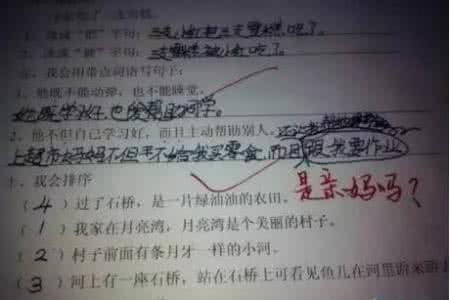 1、改成"把"字句:三支小红把三支雪糕吃了。
2、改成"被"字句:三支雪糕被小红吃了。
、我会用带点词语写句子:
1、他既不能动弹,也不能睡觉。
她既学习好,也爱帮助同学。
2、他不但自己学习好,而且主动帮助别人。
上超市妈妈不但不给我买零食,而且跟我要作业
是亲妈吗?
十、我会排序
(4)过了石桥,是一片绿油油的农田。
(1)我家在月亮湾,月亮湾是个美丽的村子。
(2)村子前面有条月牙一样的小河。
(3)河上有一座石桥,站在石桥上可看见鱼儿在河里游来游